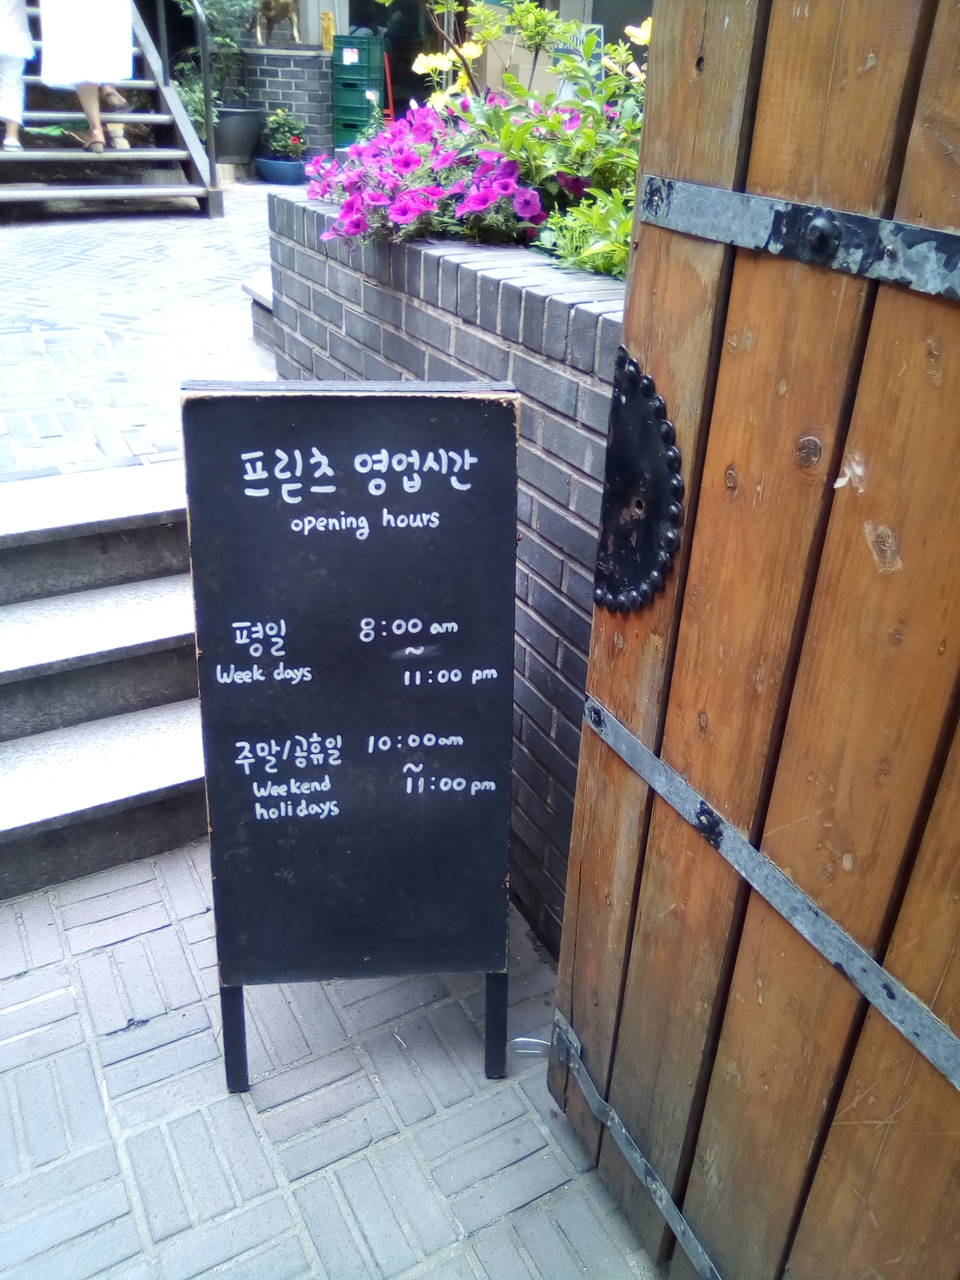 프릳츠 영업시간
opening hours
평일 8:00 am
~
Week days 11:00 pm
주말/공휴일 10:00am
~
Weekend 11:00 pm
holidays